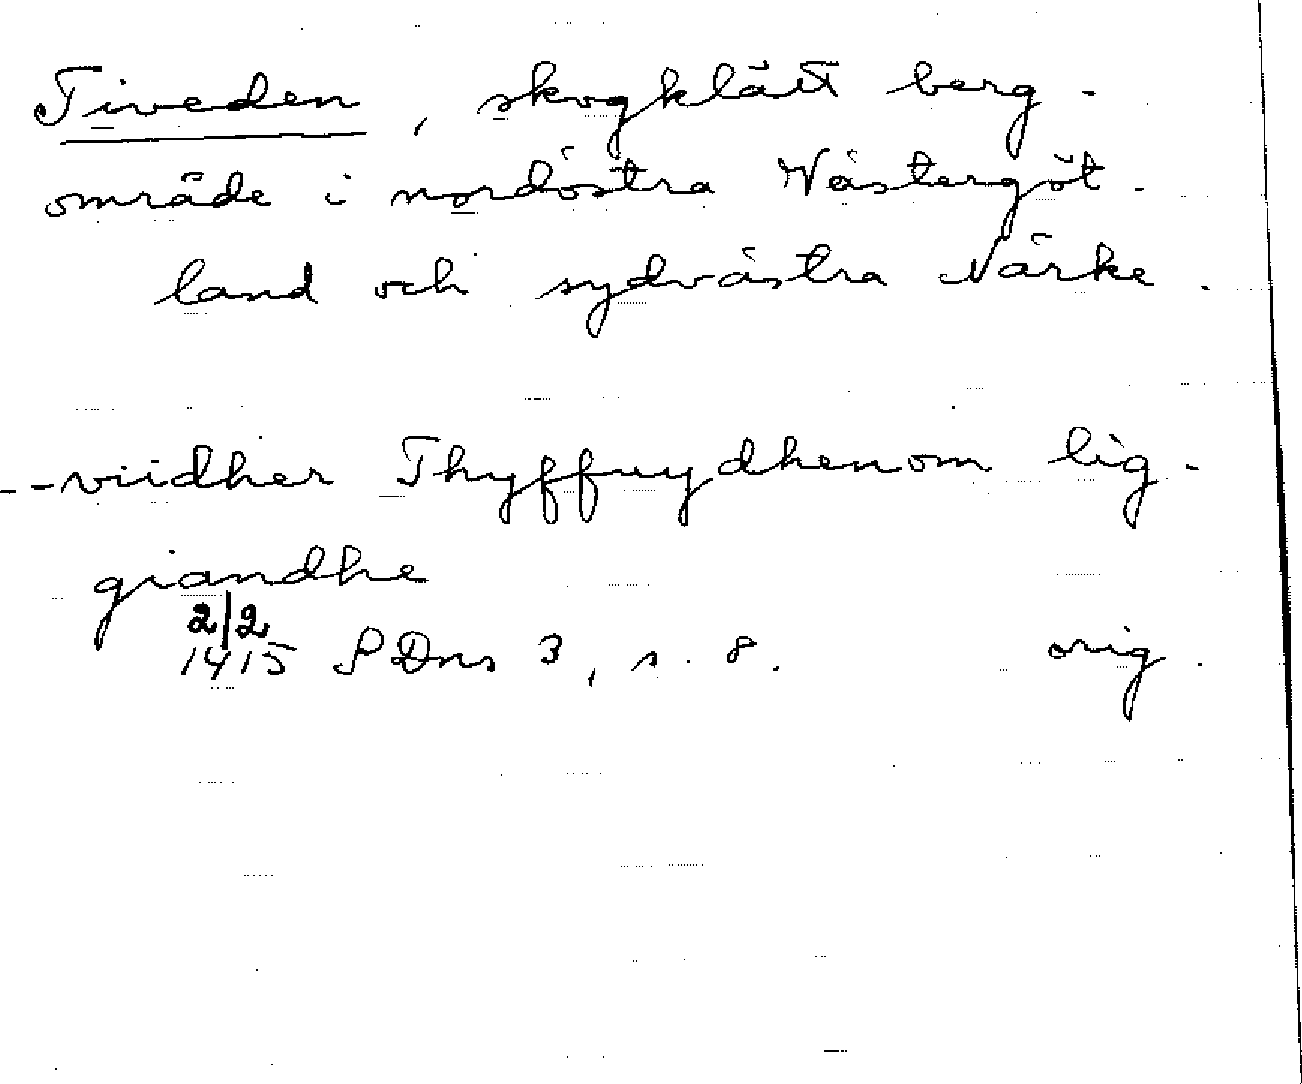 Tiveden, skogklätt berg-
område i nordöstra Västergöt-
land och sydvästra Närke.
-- viidher Thyffuydhenom lig-
giandhe
2/2
1415 SDns 3, s. 8. orig.